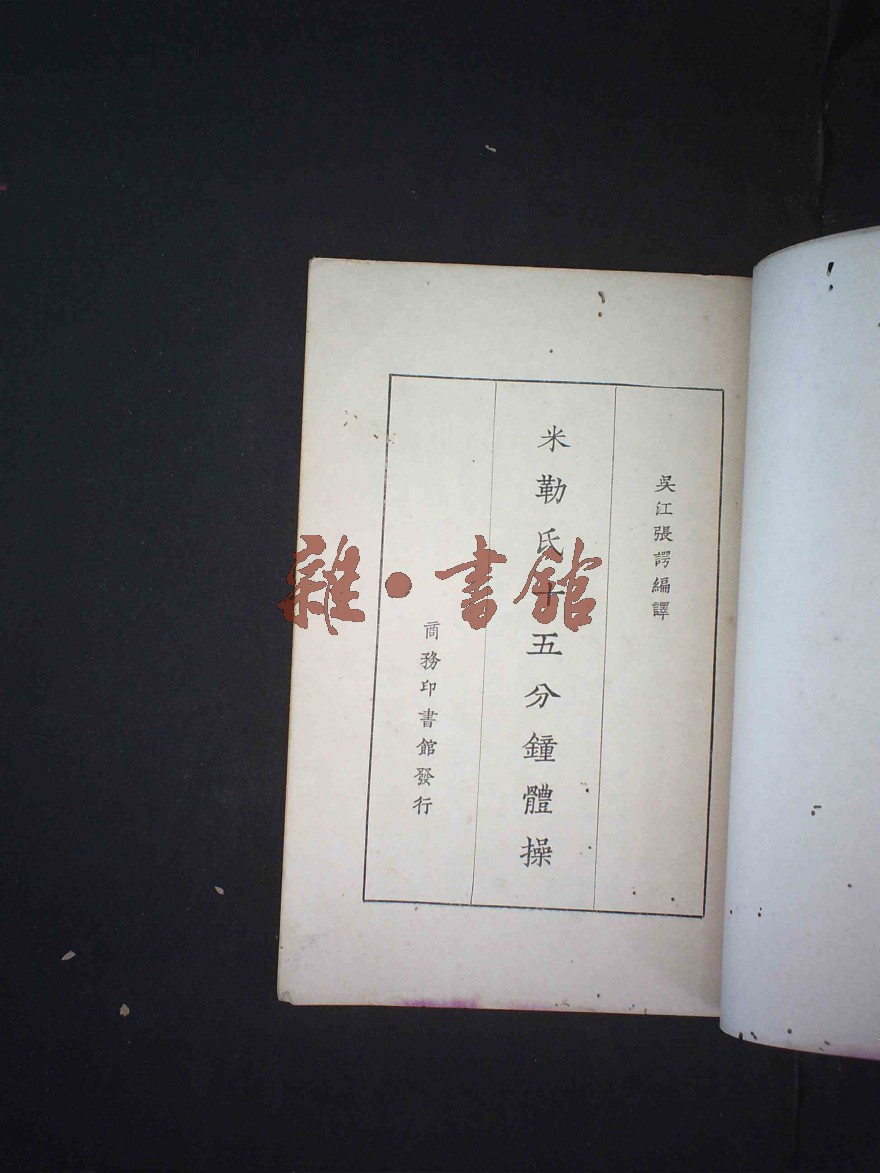 吳江張諤編譯
米勒氏十五分鐘體操
商務印書館發行
雜·書館